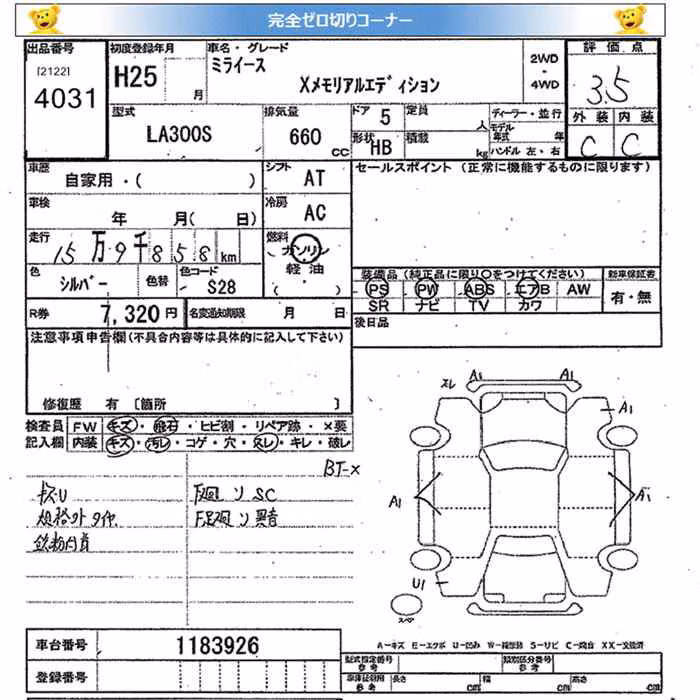 完全ゼロ切りコーナー
出品番号 初度登録年月 車名・グレード 評価点
[2122] ミライース 2WD
4031 H25 年 月 Xメモリアルエディション 4WD 3.5
型式 排気量 ドア 5 定員 人 ディーラー・並行 外装 内装
LA300S 660 CC 形状 HB 積載 kg モデル年式 年 C C
ハンドル 左・右
車歴 シフト セールスポイント (正常に機能するものに限ります)
自家用・( ) AT
車検 冷房
年 月( 日) AC
走行 燃料
15万9千858km ガソリン
軽油
色 色替 色コード ( )
シルバー S28
装備品 (純正品に限り○をつけてください) 新車保証書
PS PW ABS エアB AW 有・無
SR ナビ TV カワ
R券 7,320円 名変通知期限 月 日 後日品
注意事項申告欄(不具合内容等は具体的に記入して下さい)
修復歴 有 [箇所 ]
検査員 FW キズ・飛石・ヒビ割・リペア跡・×要
記入欄 内装 キズ・汚レ・コゲ・穴・スレ・キレ・破レ
BT-×
キズU 下廻リSC
規格外タイヤ 足廻リ異音
スレ A1 A1
A1
A1 A1
U1
スペア
車台番号 1183926
A-キズ E-エクボ U-凹ミ W-補修跡 S-サビ C-腐食 XX-交換済
登録番号 型式指定番号 参考 類別区分番号 参考
長さ cm 幅 cm 高さ cm